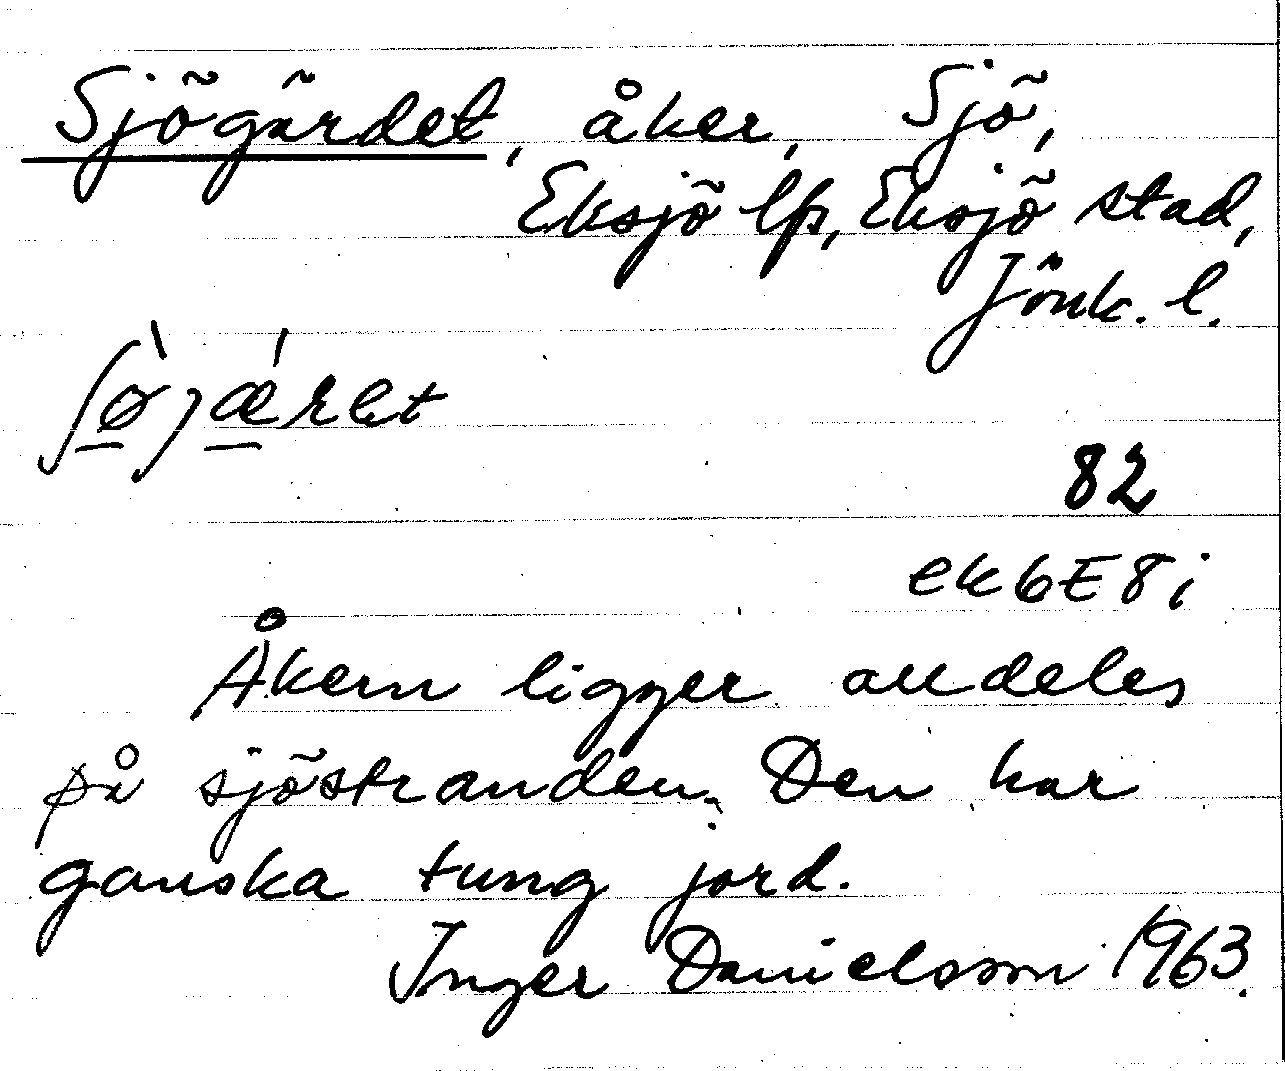 Sjögärdet, åker, Sjö,
Eksjö lfs, Eksjö stad,
Jönk. l.
ʃø̠̀jǽ̠ret
82
ek 6E8i
Åkern ligger alldeles
på sjöstranden. Den har
ganska tung jord.
Inger Danielsson 1963.